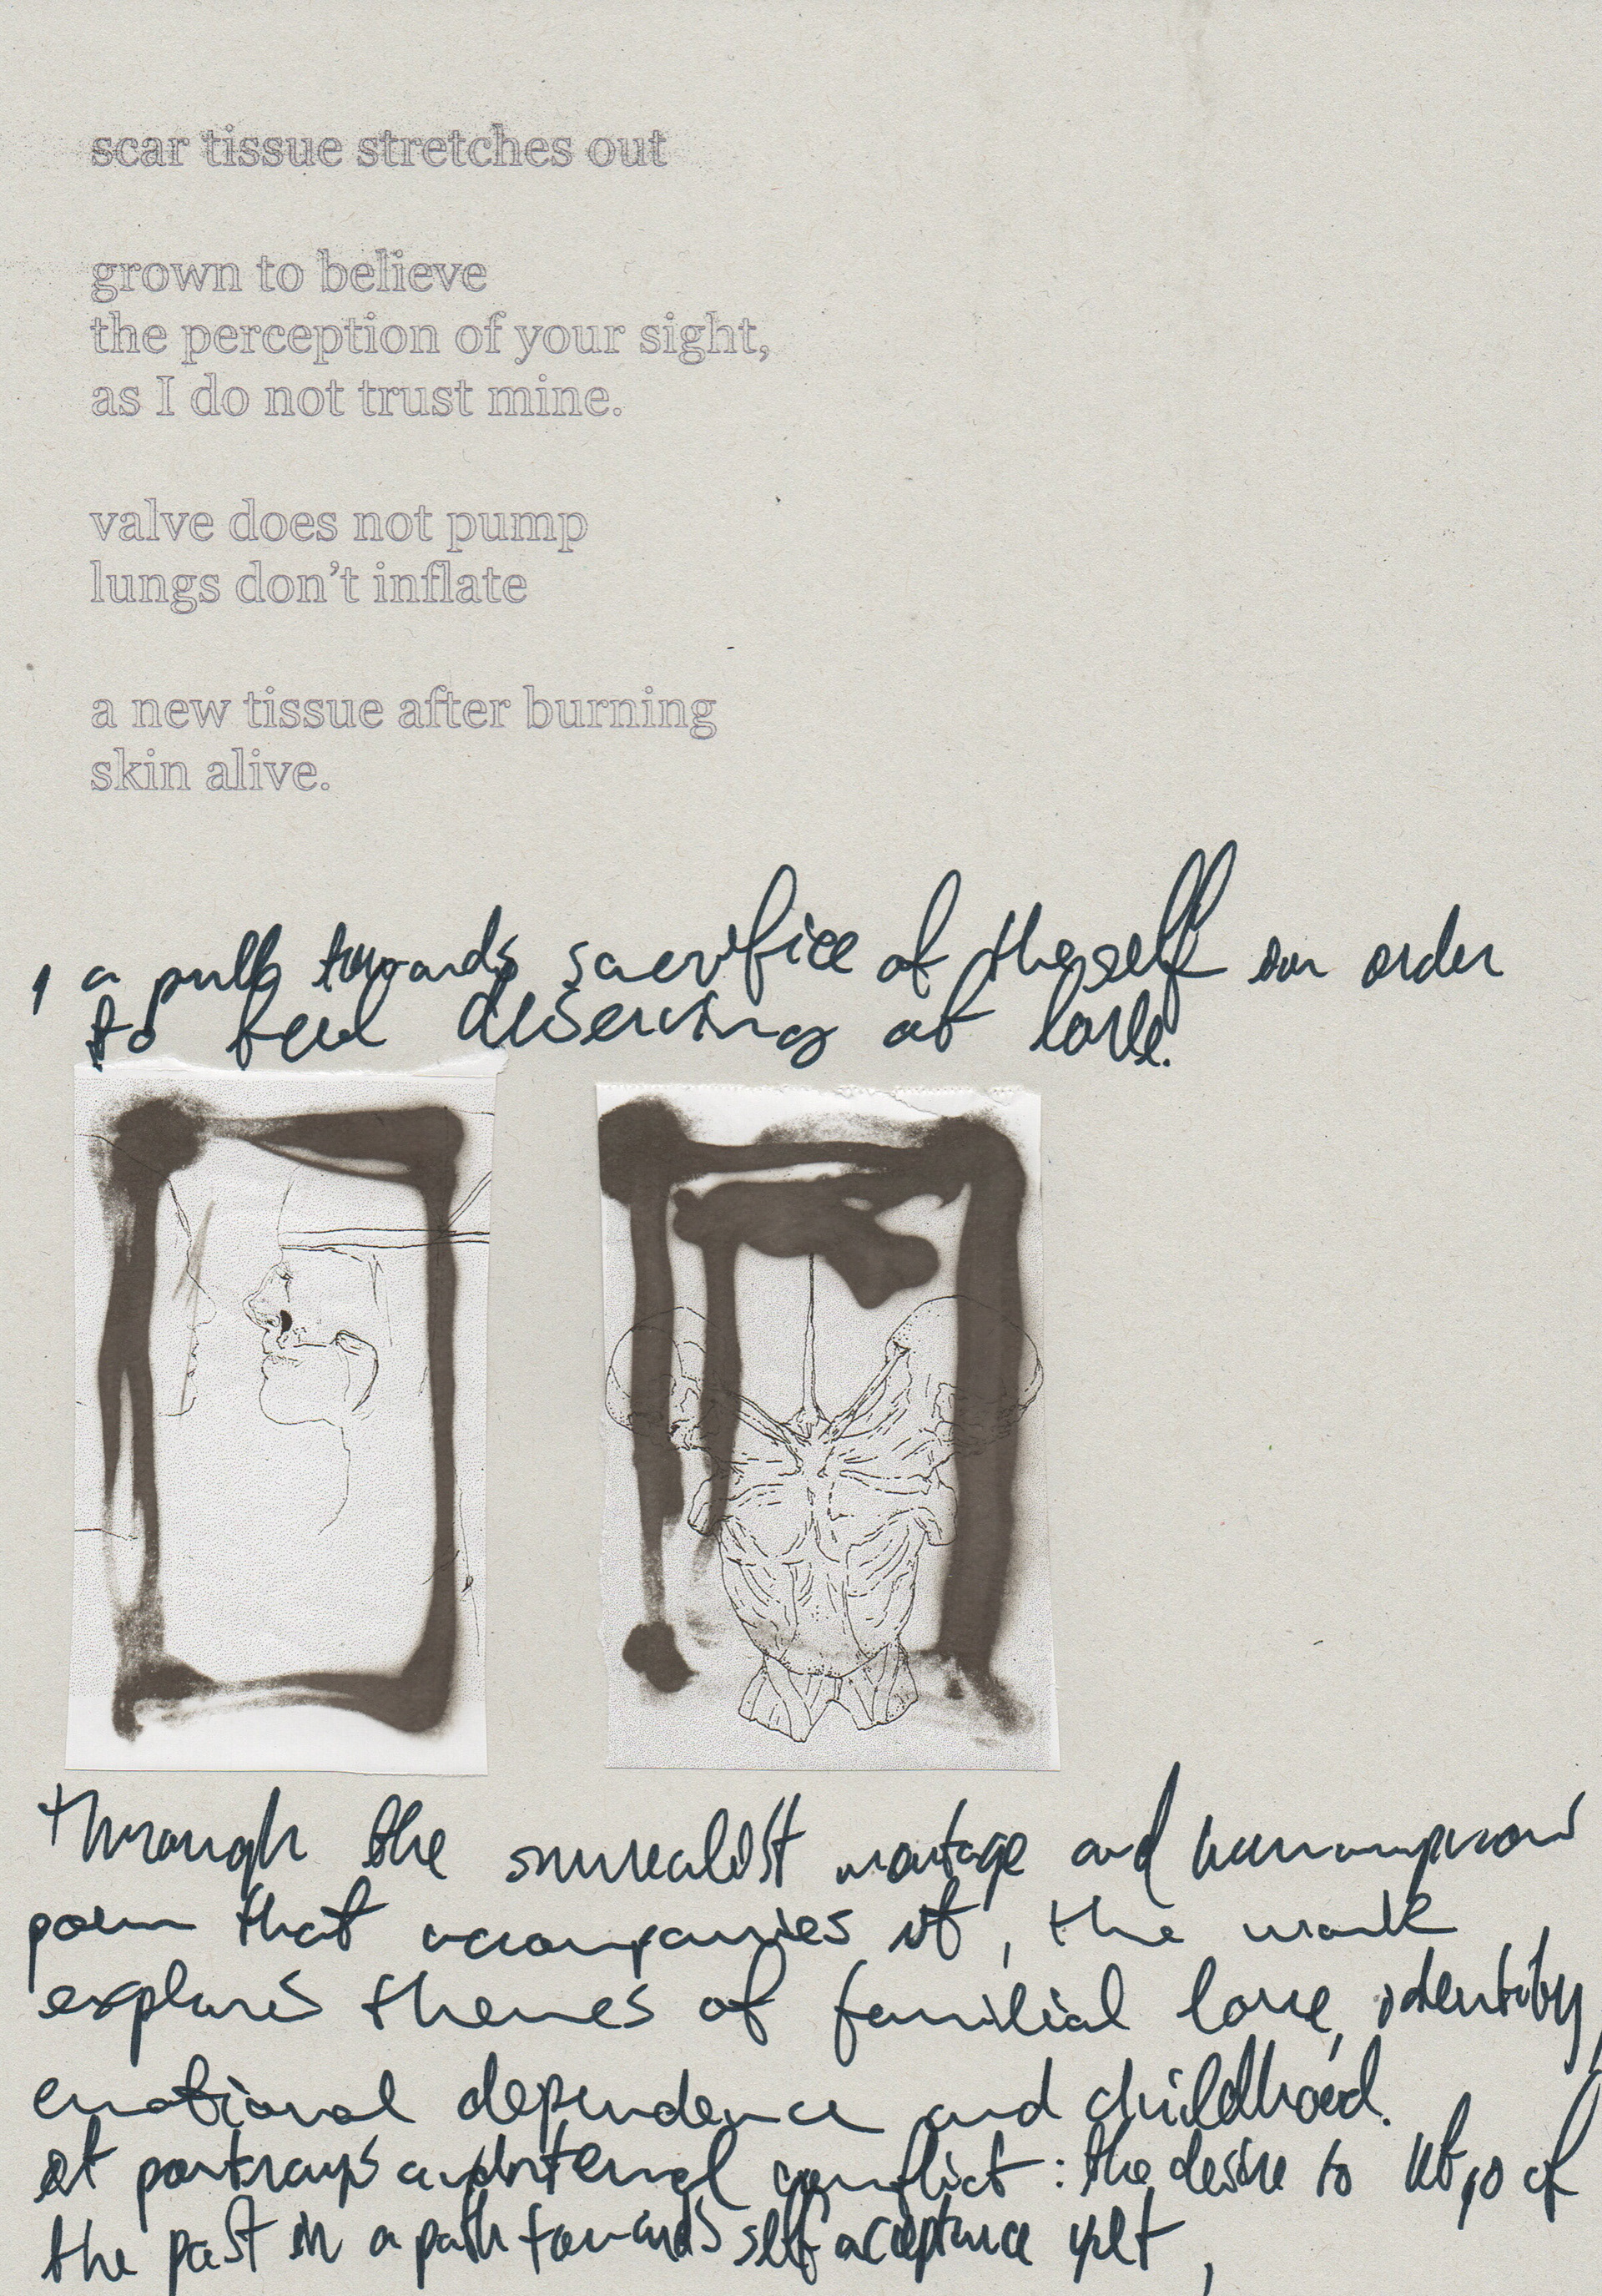 scar tissue stretches out
grown to believe
the perception of your sight,
as I do not trust mine.
valve does not pump
lungs don't inflate
a new tissue after burning
skin alive.
, a pull towards sacrifice of the self in order
to feel deserving of love.
through the surrealist montage and
poem that accompanies it, the work
explores themes of familial love, identity,
emotional dependence and childhood.
it portrays an internal conflict: the desire to let go of
the past in a path towards self acceptance yet,